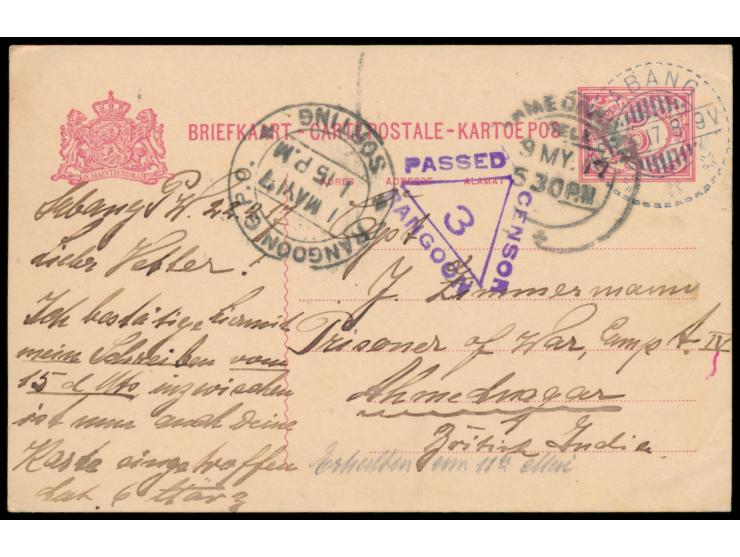 BRIEFKAART - CARTE POSTALE - KARTOE POS
ADRES ADRESSE ALAMAT
JE MAINTIENDRAI
SABANG
RANGOON G.P.O.
SORTING
1 MAY 17
1.15 P.M
9 MY. 17
5.30PM
PASSED
CENSOR
RANGOON
3
Sabang P. W. 22.4.17
Lieber Vetter!
Ich bestätige hiermit
mein Schreiben vom
15 d Mts inzwischen
ist nun auch deine
Karte eingetroffen
dat. 6 März
Capt
J. Zimmermann
Prisoner of War, Camp A IV
Ahmednagar
British India